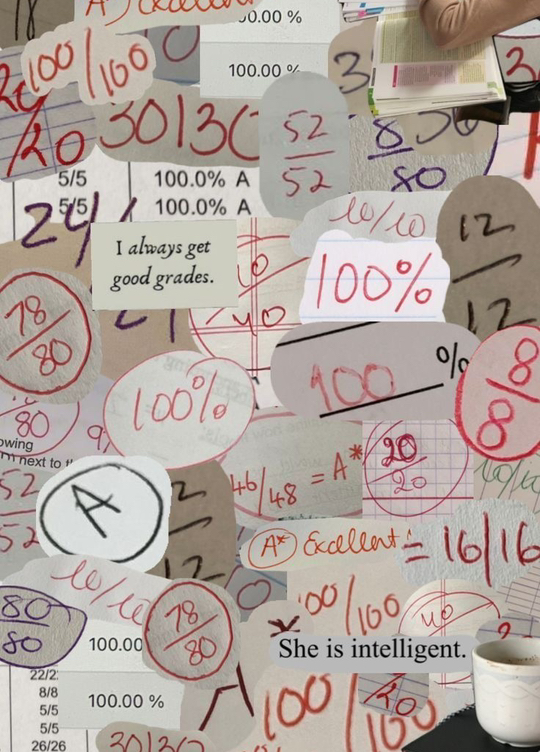 A) Excellent
100.00 %
100/100
100.00 %
20/20
30/30
52/52
8
80
5/5 100.0% A
5/5 100.0% A
24/
10/10
12/12
I always get
good grades.
100%
78/80
40
100 %
8/8
100%
80
owing
m next to t
46/48 = A*
20/20
10/10
52/52
A
12
A* Excellent!
= 16/16
10/10
80/80
78/80
100/100
40
She is intelligent.
100.00
22/22
8/8
100.00 %
5/5
5/5
26/26
A
100/100
20
30/30